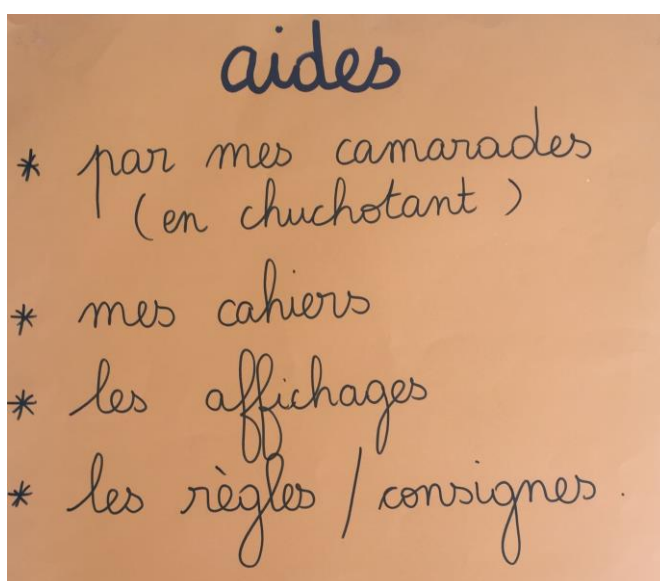 aides
* par mes camarades
(en chuchotant)
* mes cahiers
* les affichages
* les règles / consignes.